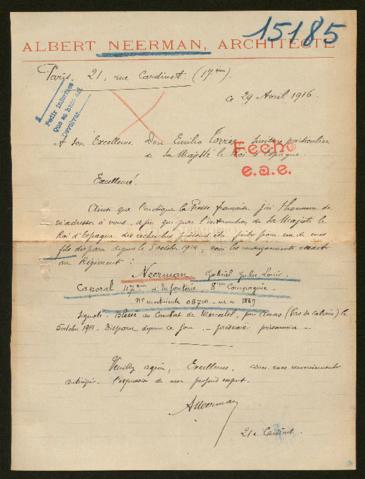 15185
ALBERT NEERMAN, ARCHITECTE
Paris, 21, rue Cardinet (17ème)
ce 29 Avril 1916
A son Excellence Don Emilio Torres
de sa Majesté le Roi d'Espagne
Fecho
e.a.e.
Excellence
Ainsi que l'indique la Presse française, j'ai l'honneur de
m'adresser à vous, afin que par l'intervention de sa Majesté le
Roi d'Espagne, des recherches puissent être faites pour un de mes
fils disparu depuis le 5 octobre 1914, voici les renseignements
au Régiment :
Neerman Gabriel Jules Louis
Caporal d'Infanterie 8ème Compagnie
N° matricule
Signalé Blessé au Combat de (Pas de Calais) le
5 octobre 1914. Disparu depuis ce jour prisonnier.
Veuillez agréer, Excellence, avec mes remerciements
anticipés, l'expression de mon profond respect.
ANeerman
21 r. Cardinet